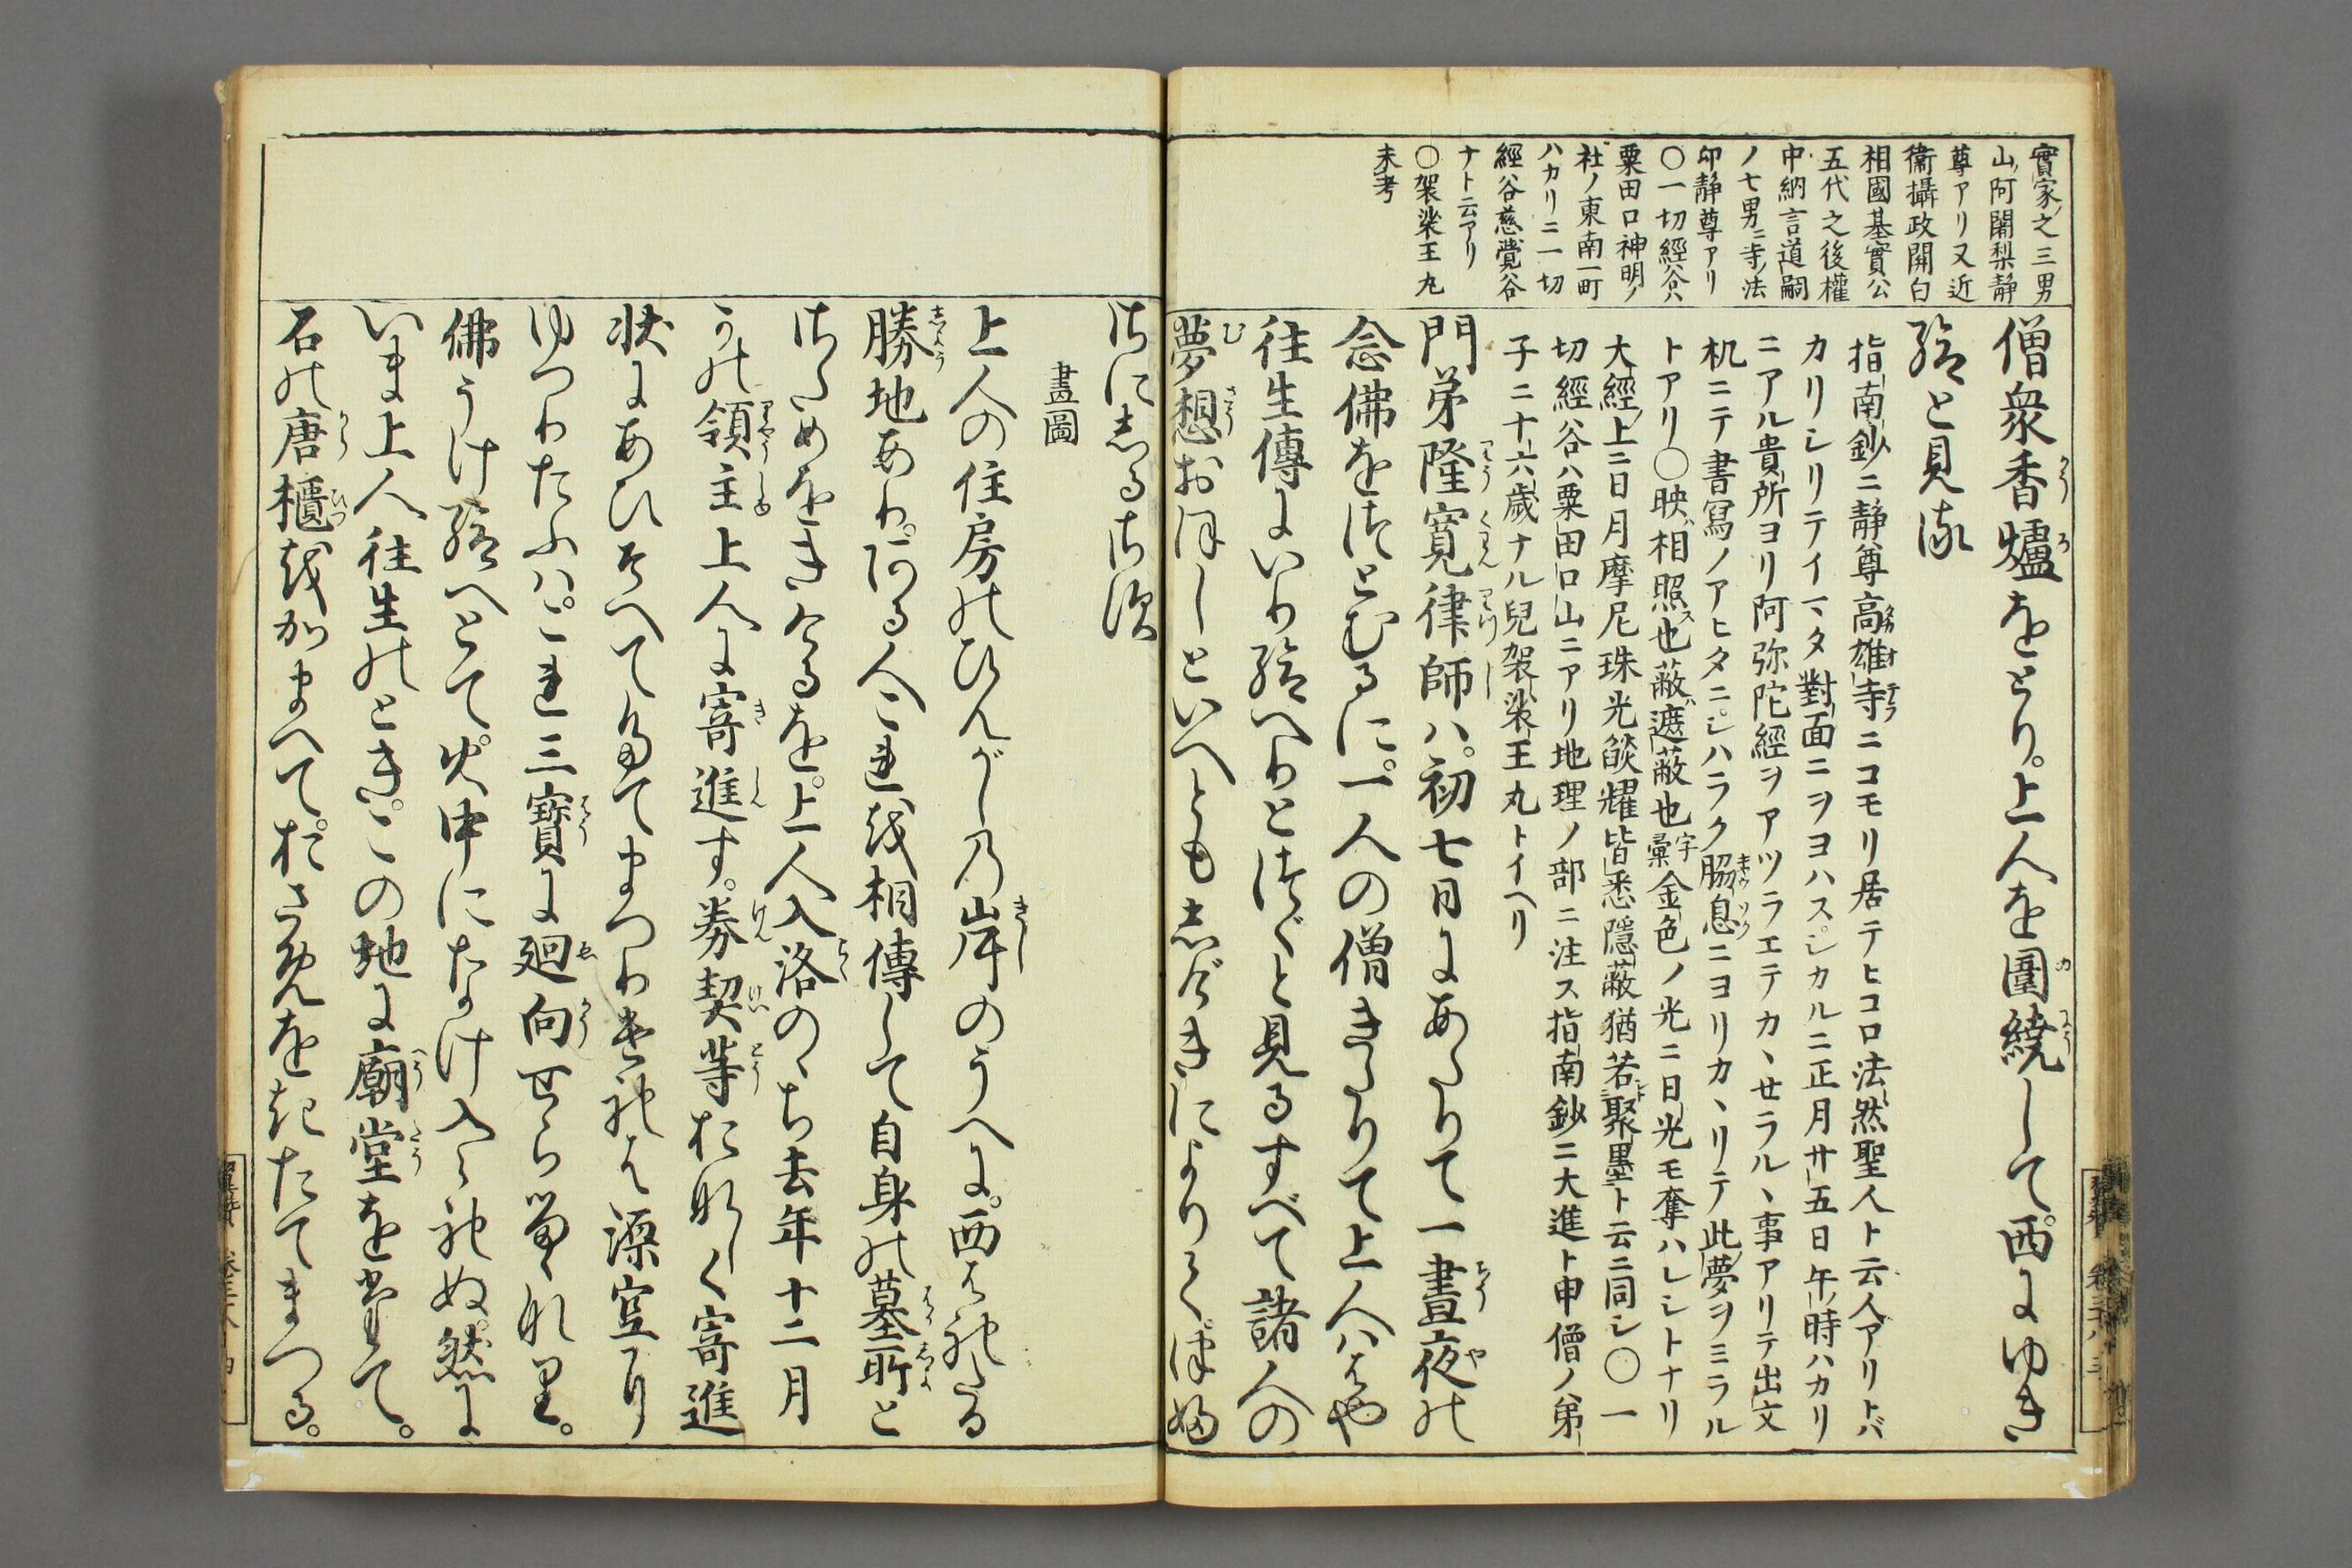 實家之三男
山阿闍梨静
尊アリ又近
衞攝政開白
相國基實公
五代之後權
中納言道嗣
ノ七男ニ寺法
印静尊アリ
〇一切經谷ハ
粟田口神明ノ
社ノ東南一町
ハカリニ一切
經谷慈覺谷
ナト云アリ
〇袈裟王丸
未考
僧衆香爐をとり。上人を圍繞して。西にゆき
給と見る
指南鈔ニ静尊高雄寺ニコモリ居テヒコロ法然聖人ト云人アリトバ
カリシリテイマタ對面ニヲヨハスシカルニ正月廿五日午時ハカリ
ニアル貴所ヨリ阿弥陀經ヲアツラエテカヽセラルヽ事アリテ出文
机ニテ書寫ノアヒタニシハラク脇息ニヨリカヽリテ此夢ヲミラル
トアリ〇映ハ相照ス也蔽ハ遮蔽也字彙金色ノ光ニ日光モ奪ハレシトナリ
大經上ニ日月摩尼珠光燄耀皆悉隱蔽猶若聚墨ト云ニ同シ〇一
切經谷ハ粟田口山ニアリ地理ノ部ニ注ス指南鈔ニ大進ト申僧ノ弟
子ニ十六歳ナル兒袈裟王丸トイヘリ
門弟隆寛律師ハ。初七日にあたりて一晝夜の
念佛をつとむるに。一人の僧きたりて上人ハはや
往生傳にいり給へりとつぐと見るすべて諸人の
夢想おほしといへともしげきによりて。つぶ
さにしるさず
畫圖
上人の住房のひんがし乃岸のうへに。西はれたる
勝地あり。ある人これを相傳して自身の墓所と
さためをきけるを。上人入洛のゝち去年十二月
かの領主上人に寄進す。券契等おなしく寄進
状にあひそへてたてまつりけれは源空か
ゆつりたふハ。これ三寶に廻向せらるゝなり。
佛うけ給へとて。火中になけ入られぬ。然に
いま上人往生のとき。この地に廟堂をたてて。
石の唐櫃をかまへて。おさめをきたてまつる。